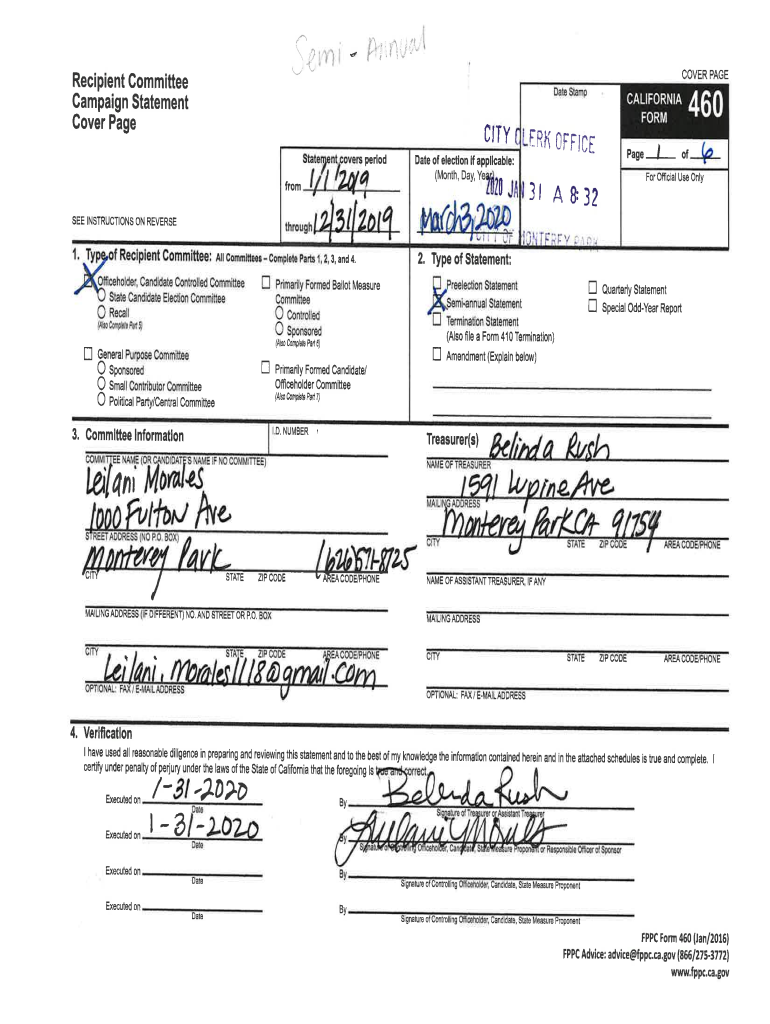 Semi-Annual
COVER PAGE
Recipient Committee
Campaign Statement
Cover Page
Date Stamp
CALIFORNIA
FORM
460
CITY CLERK OFFICE
2020 JAN 31 A 8:32
CITY OF MONTEREY PARK
Statement covers period
from 1/1/2019
through 12/31/2019
Date of election if applicable:
(Month, Day, Year)
March 3, 2020
Page 1 of 6
For Official Use Only
SEE INSTRUCTIONS ON REVERSE
1. Type of Recipient Committee: All Committees – Complete Parts 1, 2, 3, and 4.
Officeholder, Candidate Controlled Committee
State Candidate Election Committee
Recall
(Also Complete Part 5)
General Purpose Committee
Sponsored
Small Contributor Committee
Political Party/Central Committee
Primarily Formed Ballot Measure
Committee
Controlled
Sponsored
(Also Complete Part 6)
Primarily Formed Candidate/
Officeholder Committee
(Also Complete Part 7)
2. Type of Statement:
Preelection Statement
Semi-annual Statement
Termination Statement
(Also file a Form 410 Termination)
Amendment (Explain below)
Quarterly Statement
Special Odd-Year Report
3. Committee Information
I.D. NUMBER
COMMITTEE NAME (OR CANDIDATE'S NAME IF NO COMMITTEE)
Leilani Morales
1000 Fulton Ave
STREET ADDRESS (NO P.O. BOX)
Monterey Park (626)571-8725
CITY STATE ZIP CODE AREA CODE/PHONE
MAILING ADDRESS (IF DIFFERENT) NO. AND STREET OR P.O. BOX
CITY STATE ZIP CODE AREA CODE/PHONE
Leilani.morales1118@gmail.com
OPTIONAL: FAX / E-MAIL ADDRESS
Treasurer(s)
Belinda Rush
NAME OF TREASURER
1591 Lupine Ave
MAILING ADDRESS
Monterey Park CA 91754
CITY STATE ZIP CODE AREA CODE/PHONE
NAME OF ASSISTANT TREASURER, IF ANY
MAILING ADDRESS
CITY STATE ZIP CODE AREA CODE/PHONE
OPTIONAL: FAX / E-MAIL ADDRESS
4. Verification
I have used all reasonable diligence in preparing and reviewing this statement and to the best of my knowledge the information contained herein and in the attached schedules is true and complete. I
certify under penalty of perjury under the laws of the State of California that the foregoing is true and correct.
Executed on 1-31-2020
Date
By Belinda Rush
Signature of Treasurer or Assistant Treasurer
Executed on 1-31-2020
Date
By Leilani Morales
Signature of Controlling Officeholder, Candidate, State Measure Proponent or Responsible Officer of Sponsor
Executed on
Date
By
Signature of Controlling Officeholder, Candidate, State Measure Proponent
Executed on
Date
By
Signature of Controlling Officeholder, Candidate, State Measure Proponent
FPPC Form 460 (Jan/2016)
FPPC Advice: advice@fppc.ca.gov (866/275-3772)
www.fppc.ca.gov